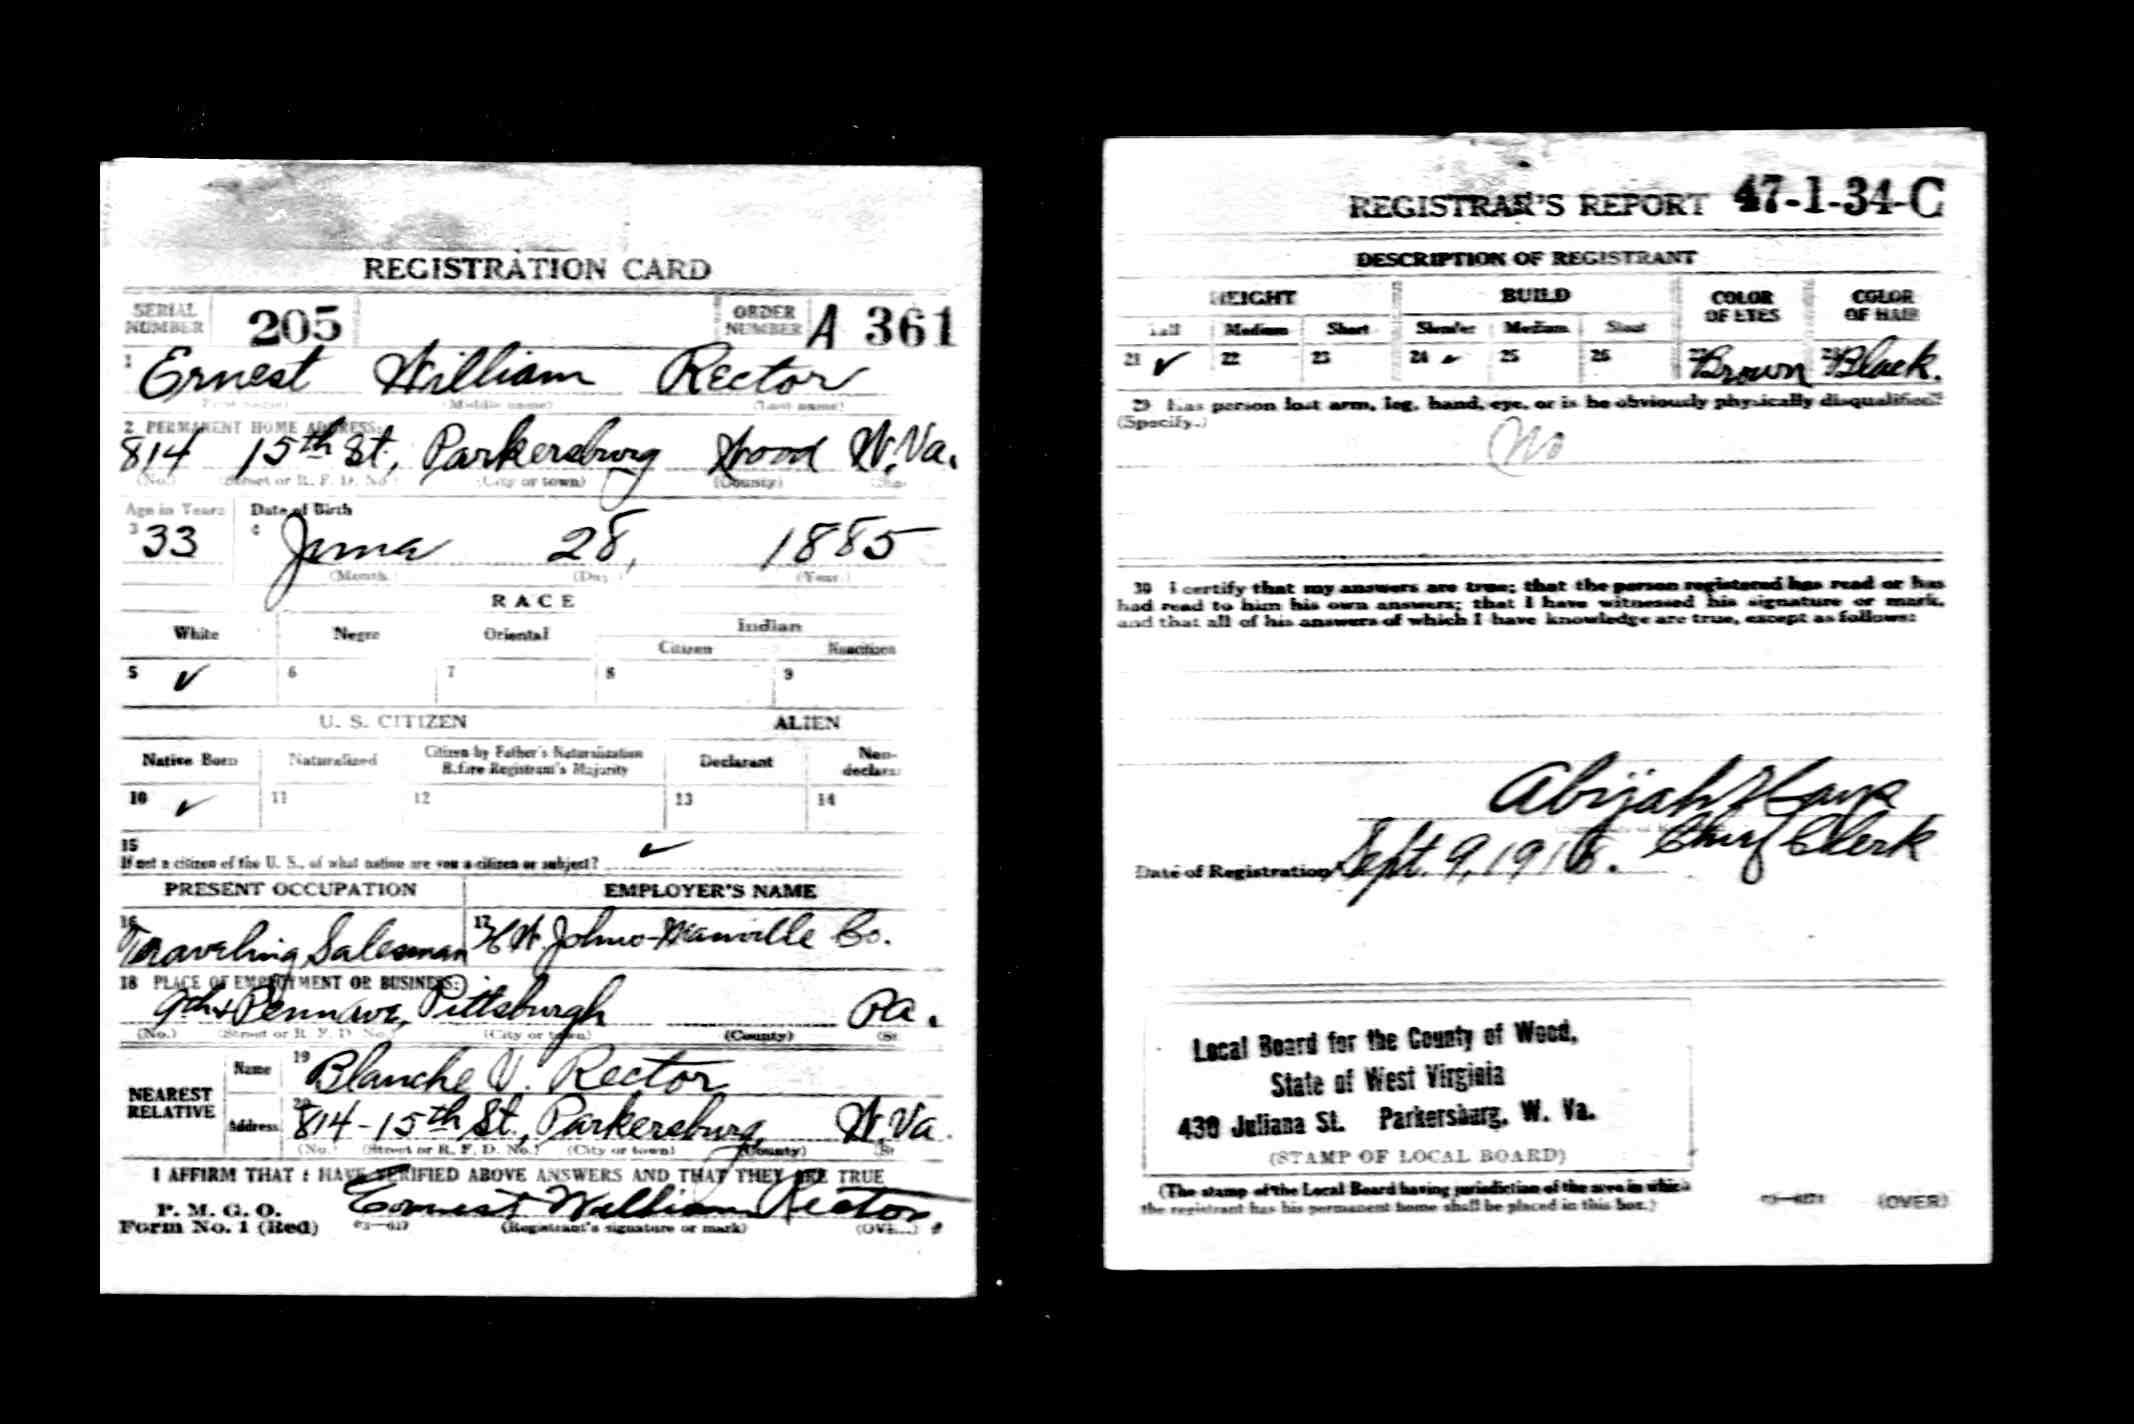 REGISTRATION CARD
SERIAL NUMBER 205 ORDER NUMBER A 361
1 Ernest William Rector
(First name) (Middle name) (Last name)
2 PERMANENT HOME ADDRESS:
814 15th St, Parkersburg Wood W.Va.
(No.) (Street or R. F. D. No.) (City or town) (County)
Age in Years Date of Birth
3 33 4 June 28, 1885
(Month.) (Day.) (Year.)
RACE
White Negro Oriental Indian
Citizen Noncitizen
5 ✓ 6 7 8 9
U. S. CITIZEN ALIEN
Native Born Naturalized Citizen by Father's Naturalization Before Registrant's Majority Declarant Non-declarant
10 ✓ 11 12 13 14
15
If not a citizen of the U. S., of what nation are you a citizen or subject? ✓
PRESENT OCCUPATION EMPLOYER'S NAME
16 Traveling Salesman 17 H.W. Johns-Manville Co.
18 PLACE OF EMPLOYMENT OR BUSINESS:
9th & Penn Ave, Pittsburgh Pa.
(No.) (Street or R. F. D. No.) (City or town) (County) (St
NEAREST RELATIVE
Name 19 Blanche V. Rector
Address 20 814-15th St., Parkersburg, W.Va.
(No.) (Street or R. F. D. No.) (City or town) (County) (St
I AFFIRM THAT I HAVE VERIFIED ABOVE ANSWERS AND THAT THEY ARE TRUE
P. M. G. O.
Form No. 1 (Red) Ernest William Rector
(Registrant's signature or mark) (OVER)
REGISTRAR'S REPORT 47-1-34-C
DESCRIPTION OF REGISTRANT
HEIGHT BUILD COLOR OF EYES COLOR OF HAIR
Tall Medium Short Slender Medium Stout
21 ✓ 22 23 24 ✓ 25 26 27 Brown 28 Black.
29 Has person lost arm, leg, hand, eye, or is he obviously physically disqualified?
(Specify.) No
30 I certify that my answers are true; that the person registered has read or has
had read to him his own answers; that I have witnessed his signature or mark,
and that all of his answers of which I have knowledge are true, except as follows:
Abijah Hays
Chief Clerk
Date of Registration Sept. 9, 1918.
Local Board for the County of Wood,
State of West Virginia
430 Juliana St. Parkersburg, W. Va.
(STAMP OF LOCAL BOARD)
(The stamp of the Local Board having jurisdiction of the area in which
the registrant has his permanent home shall be placed in this box.)
(OVER)